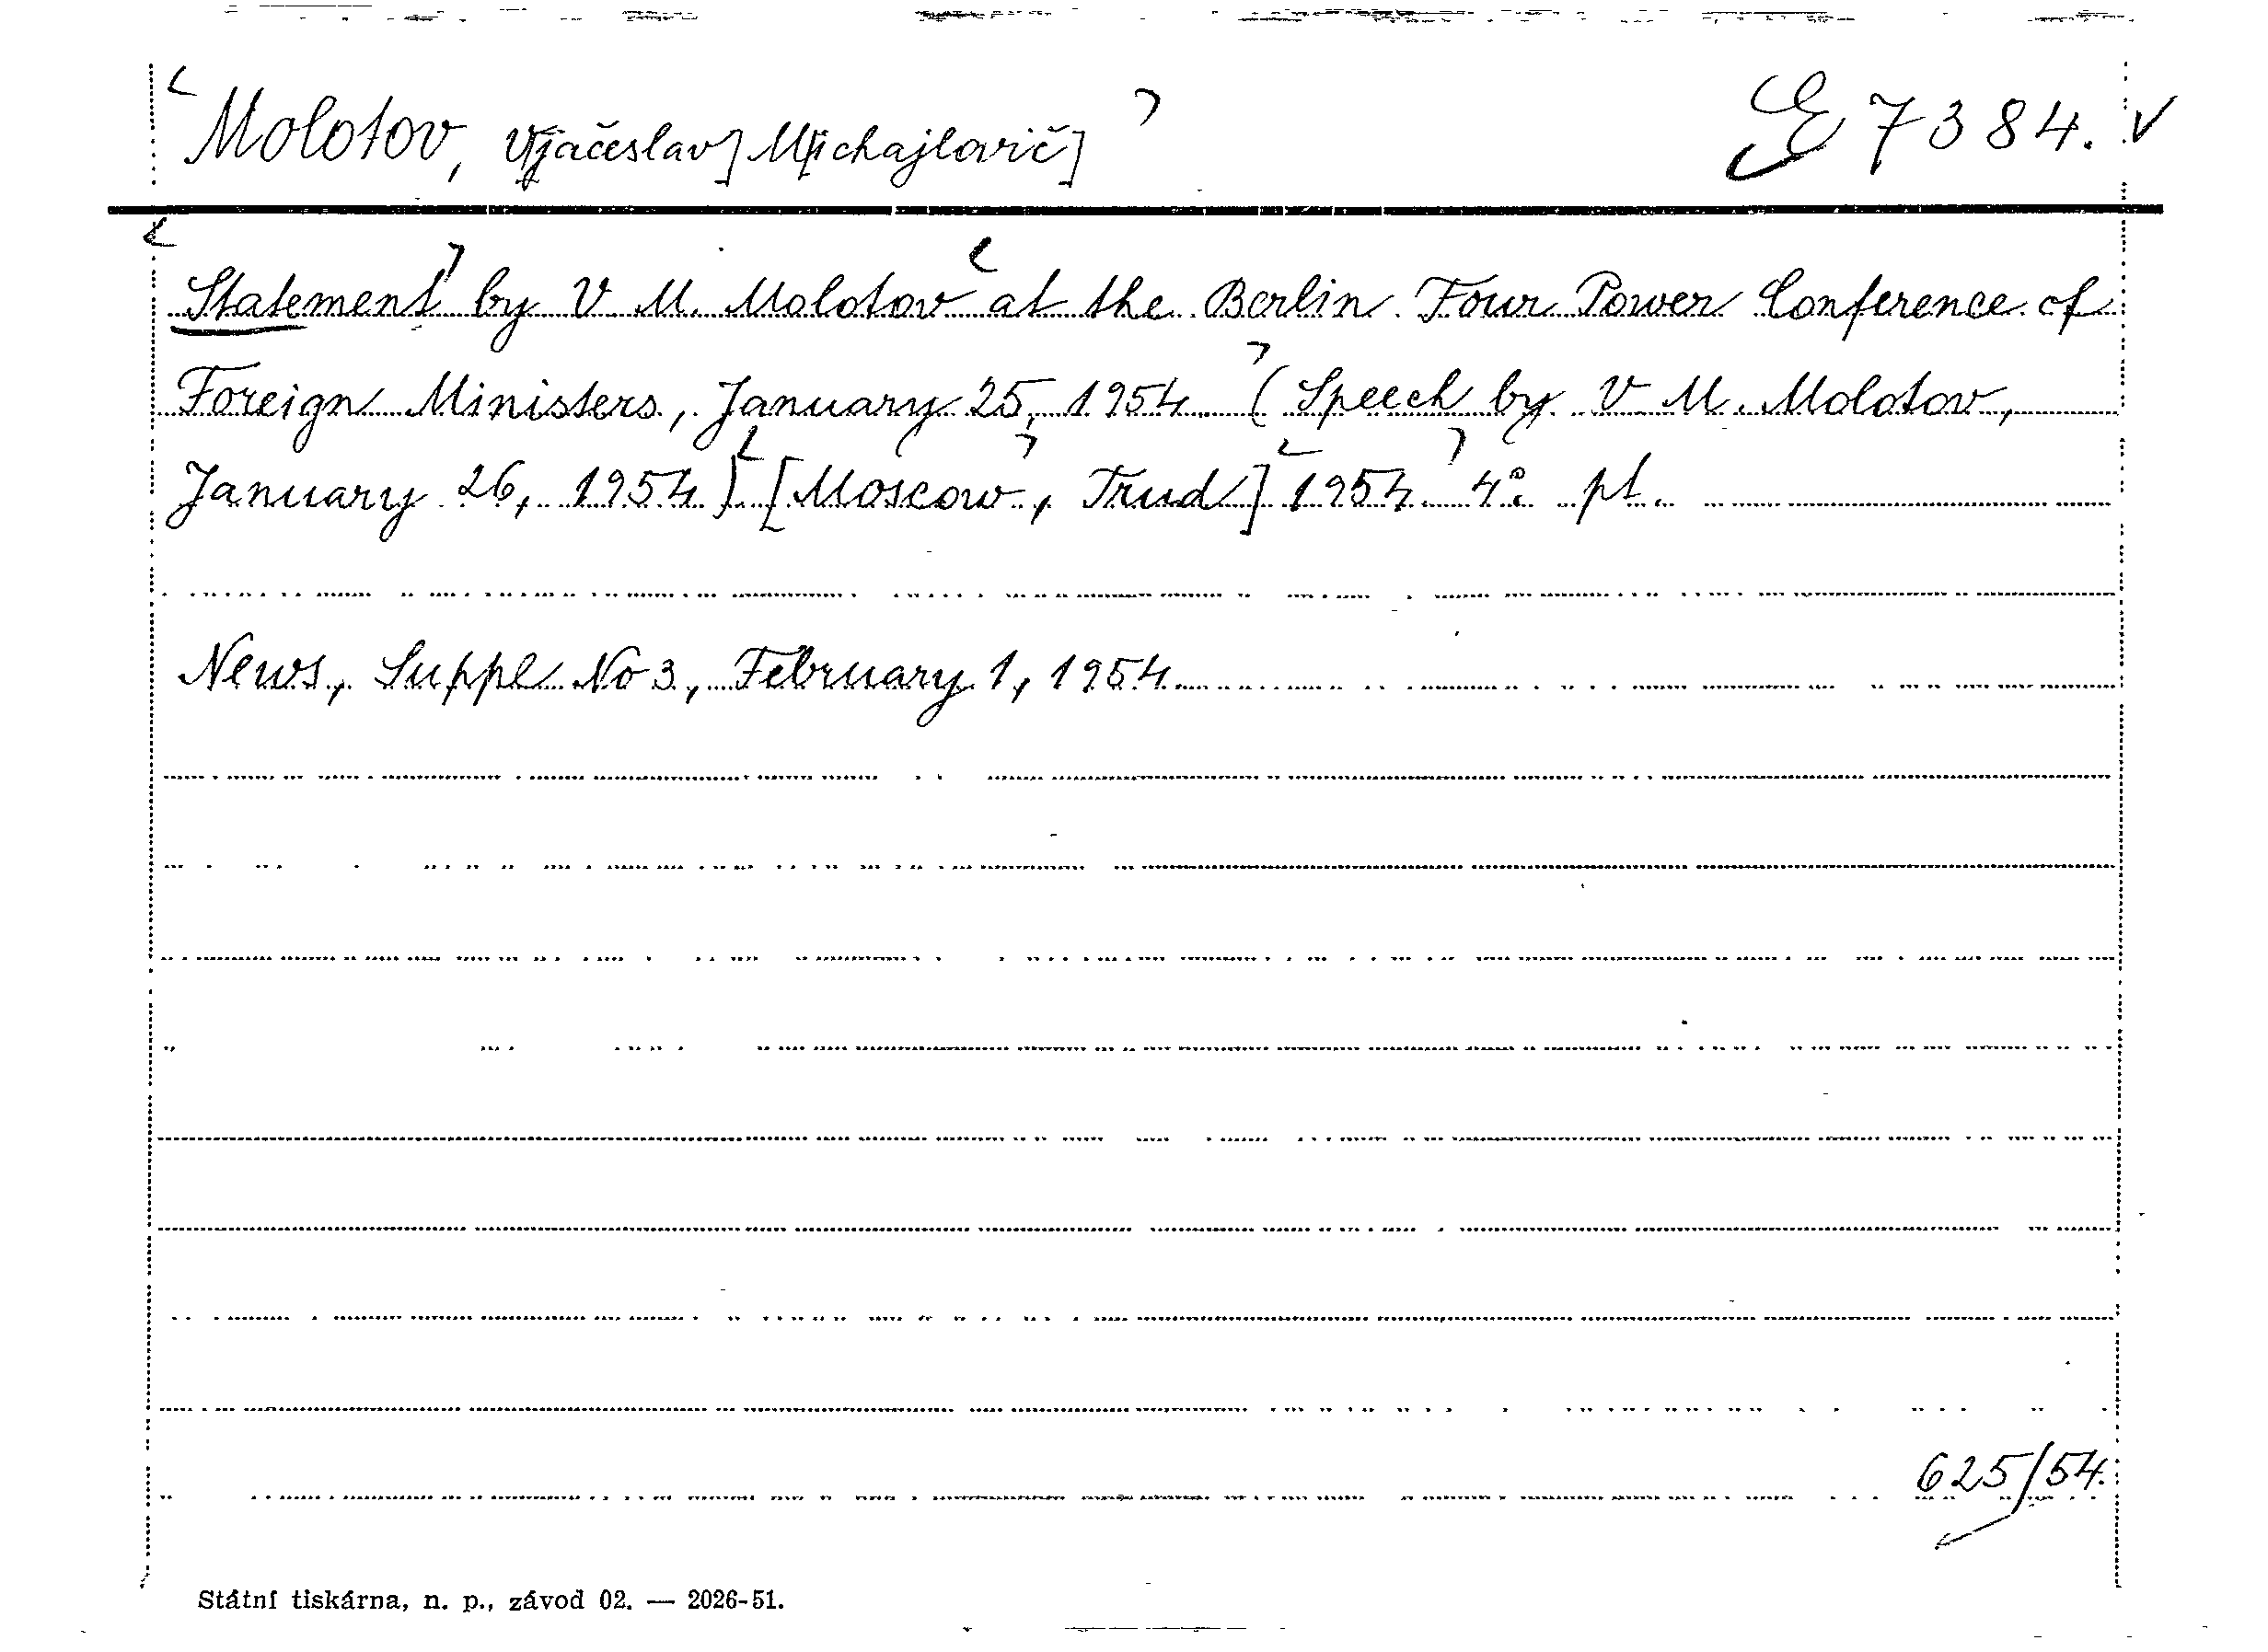 Molotov, V[jačeslav] M[ichajlovič] E 7384.
Statement by V. M. Molotov at the Berlin Four Power Conference of
Foreign Ministers, January 25, 1954. (Speech by V. M. Molotov,
January 26, 1954.) [Moscow, Trud] 1954. 4°. pt.
News, Suppl. No 3, February 1, 1954.
625/54.
Státní tiskárna, n. p., závod 02. — 2026-51.